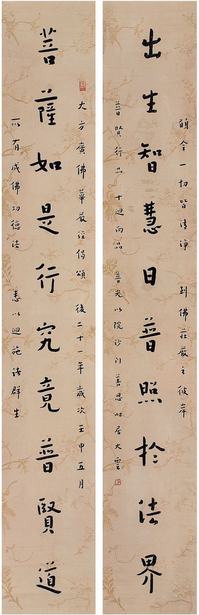 出生智慧日普照於法界
願令一切皆清淨
到佛莊嚴之彼岸
普賢行品
十迴向品
沙門
菩薩如是行究竟普賢道
大方廣佛華嚴經偈頌
後二十一年歲次壬申五月
所有成佛功德法
悉以迴施諸群生